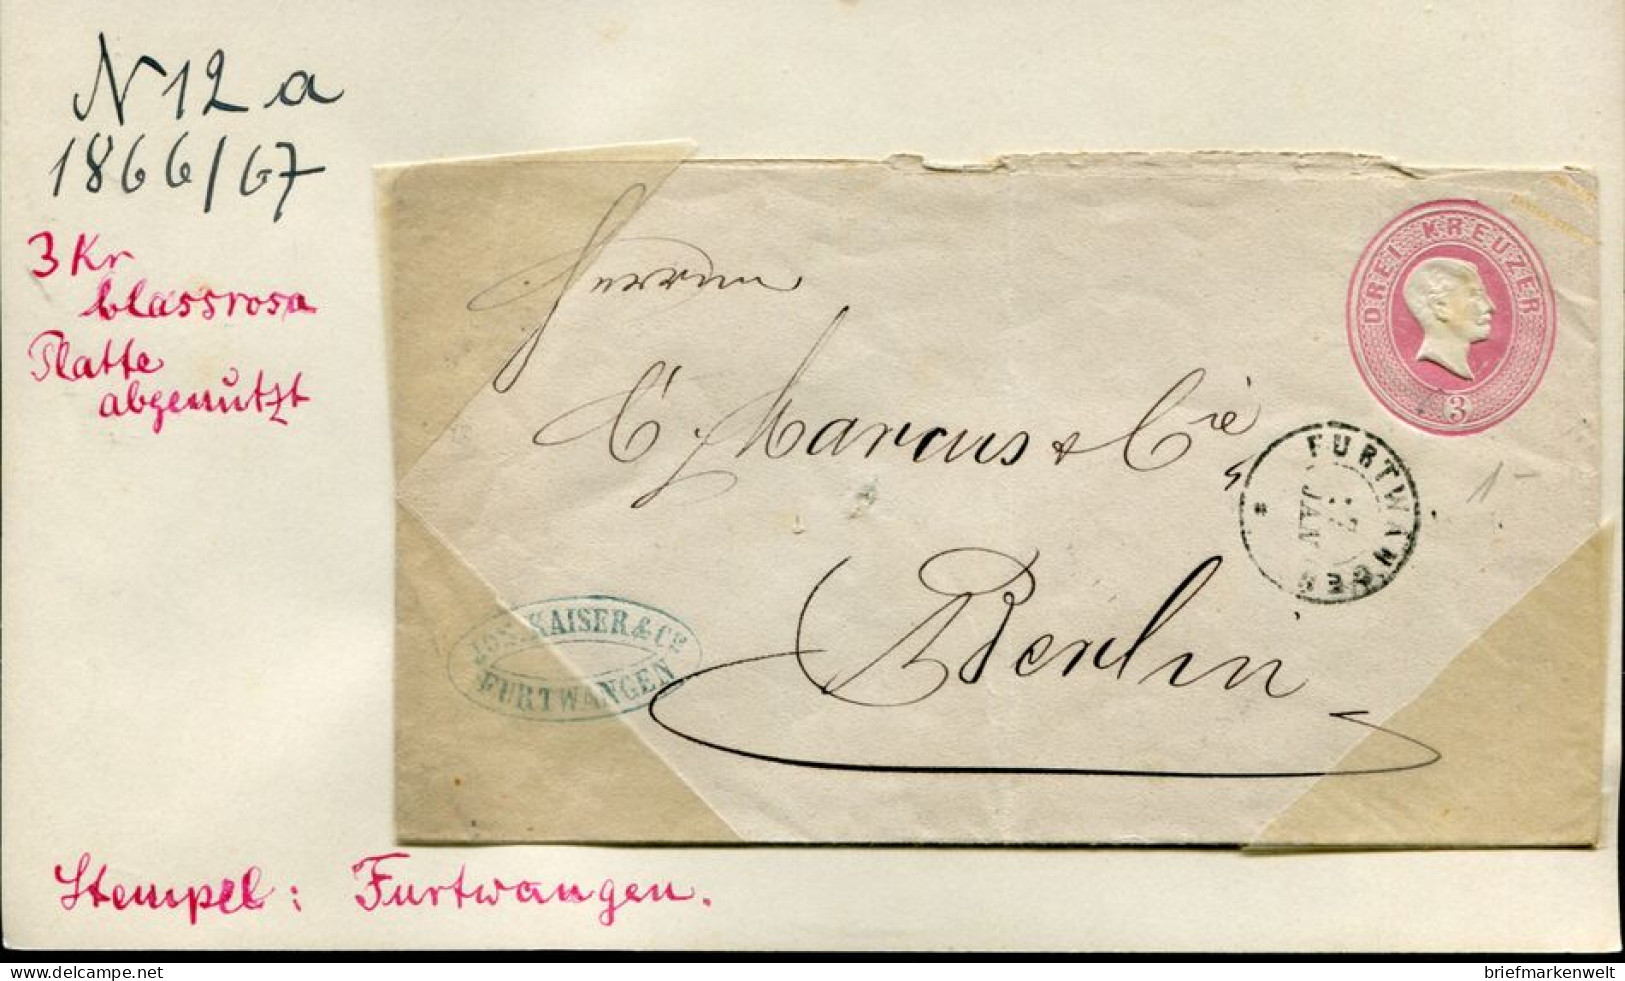 N 12 a
1866/67
3 Kr
blassrosa
Platte
abgenützt
DREI KREUZER
3
Herren
C. Marcus & Cie
Berlin
FURTWANGEN
17
JAN
JOS. KAISER & CIE
FURTWANGEN
1-
Stempel: Furtwangen.
briefmarkenwelt